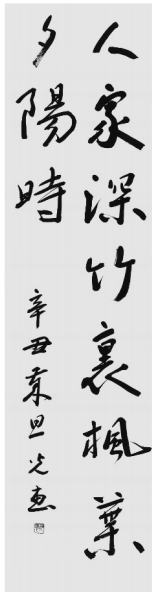 人家深竹裏楓葉
夕陽時
辛丑東旦光畫